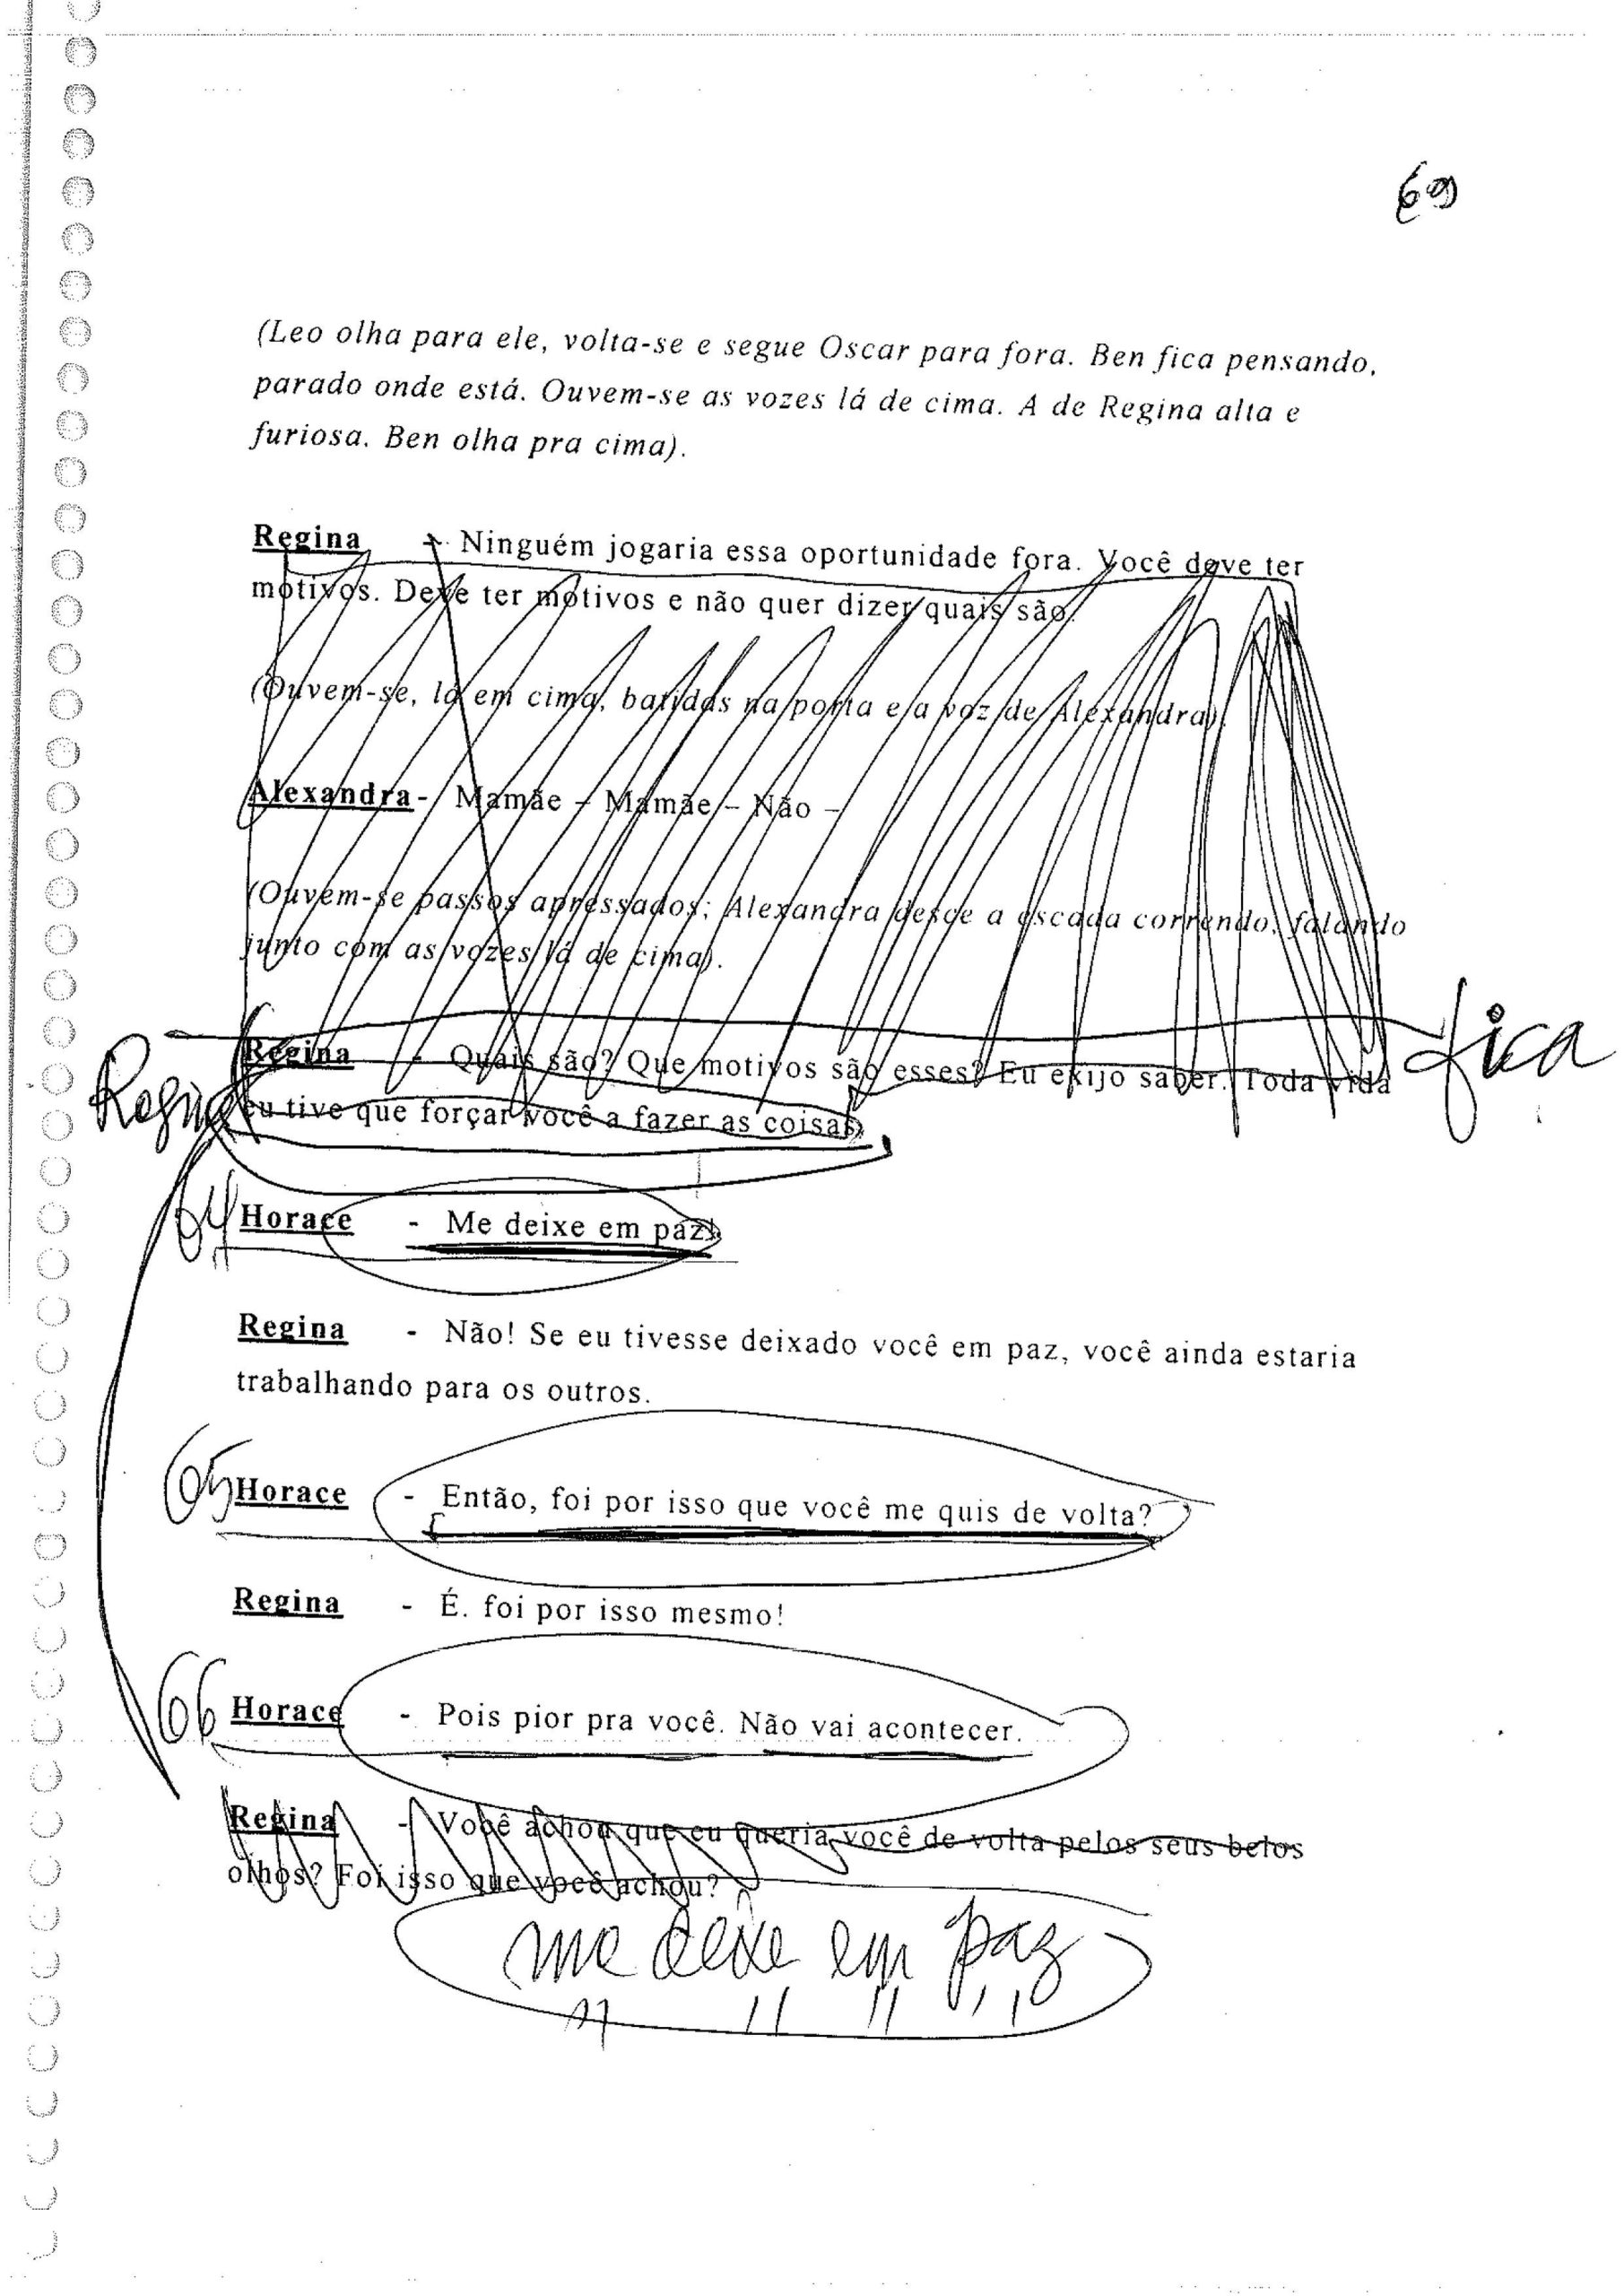 69
(Leo olha para ele, volta-se e segue Oscar para fora. Ben fica pensando,
parado onde está. Ouvem-se as vozes lá de cima. A de Regina alta e
furiosa. Ben olha pra cima).
Regina - Ninguém jogaria essa oportunidade fora. Você deve ter
motivos. Deve ter motivos e não quer dizer quais são.
(Ouvem-se, lá em cima, batidas na porta e a voz de Alexandra).
Alexandra - Mamãe – Mamãe – Não –
(Ouvem-se passos apressados; Alexandra desce a escada correndo, falando
junto com as vozes lá de cima).
fica
Regina - Quais são? Que motivos são esses? Eu exijo saber. Toda vida
Regina eu tive que forçar você a fazer as coisas.
64 Horace - Me deixe em paz!
Regina - Não! Se eu tivesse deixado você em paz, você ainda estaria
trabalhando para os outros.
65 Horace - Então, foi por isso que você me quis de volta?
Regina - É. foi por isso mesmo!
66 Horace - Pois pior pra você. Não vai acontecer.
Regina - Você achou que eu queria você de volta pelos seus belos
olhos? Foi isso que você achou?
me deixe em paz
" " " "